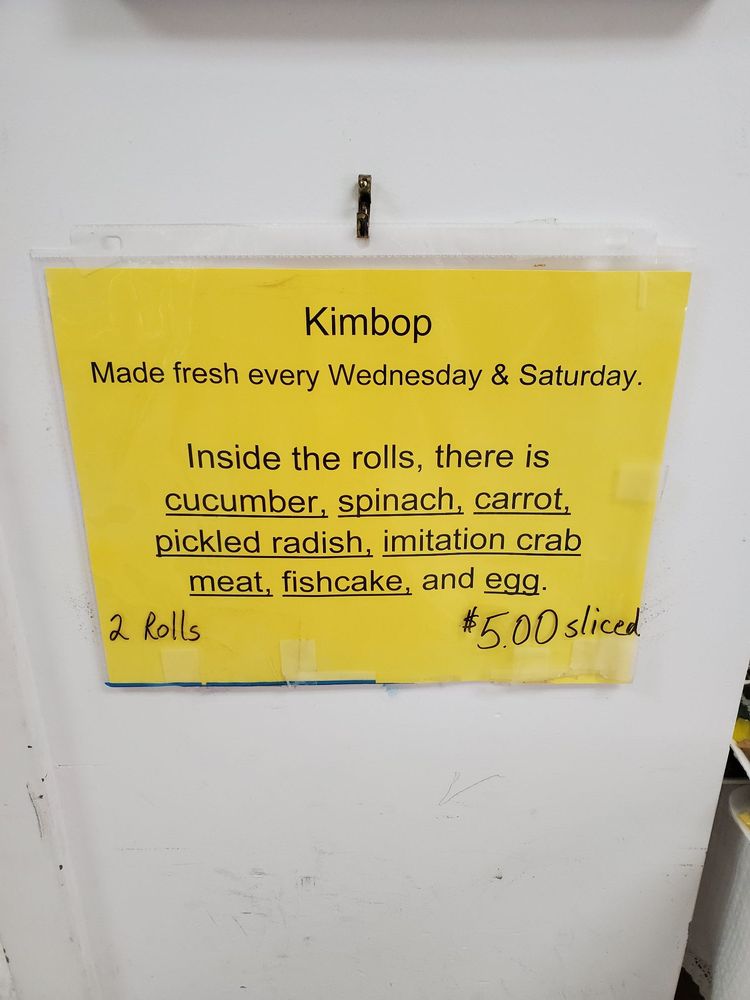 Kimbop
Made fresh every Wednesday & Saturday.
Inside the rolls, there is
cucumber, spinach, carrot,
pickled radish, imitation crab
meat, fishcake, and egg.
2 Rolls $5.00 sliced